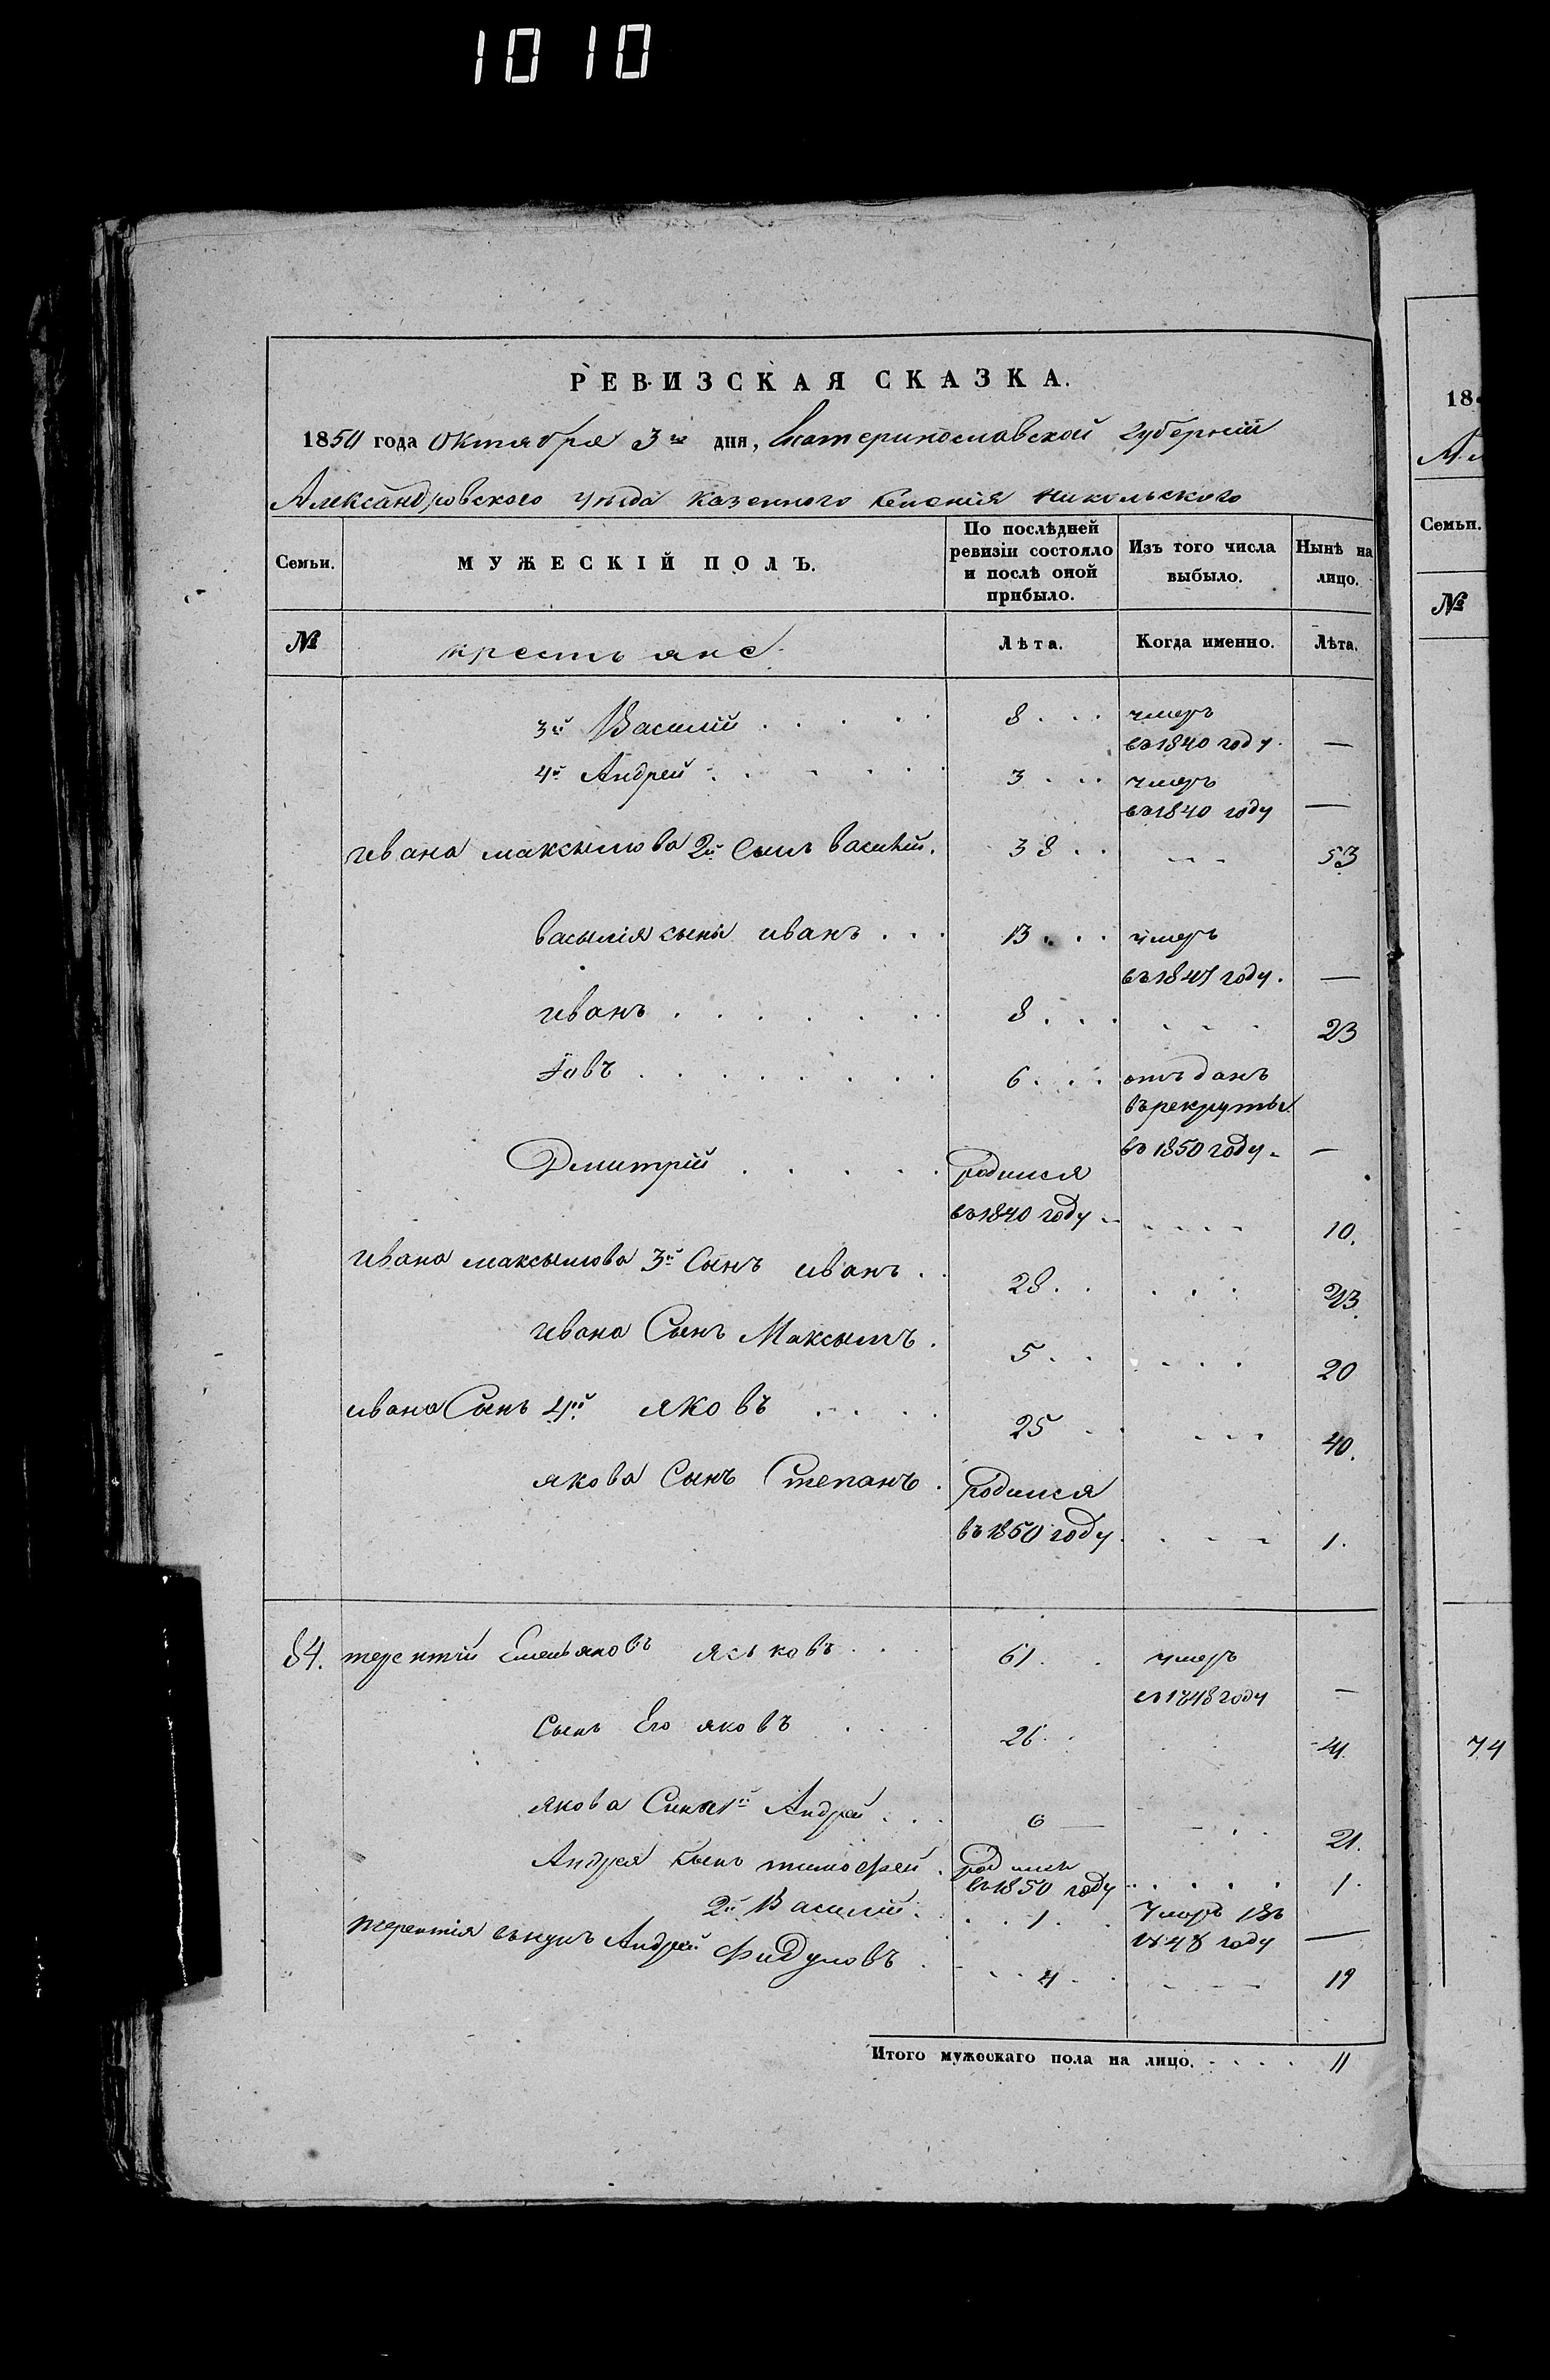 1010
РЕВИЗСКАЯ СКАЗКА.
1850 года Октября 3го дня, Екатеринославской губерніи
Александровского уезда казенного селенія Никольского
Семьи. МУЖЕСКІЙ ПОЛЪ. По послѣдней ревизіи состояло и послѣ оной прибыло. Изъ того числа выбыло. Нынѣ на лицо.
№ крестьяне Лѣта. Когда именно. Лѣта.
3й Василій 8 умеръ
въ 1840 году. —
4й Андрей 3 умеръ
въ 1840 году —
ивана максымова 2й Сынъ василій. 38 53
василія сыны иванъ 13 умеръ
въ 1847 году. —
иванъ 8 23
Іовъ 6 отъданъ
въ рекруты
въ 1850 году —
Дмитрій родился
въ 1840 году 10.
ивана максымова 3й Сынъ иванъ 28
ивана Сынъ Максымъ. 5 20
ивана Сынъ 4й яковъ 25 40.
якова Сынъ Степанъ. родился
въ 1850 году 1.
84. терентій Емельяновъ яськовъ 61 умеръ
въ 1848 году —
Сынъ Его яковъ 26 41.
якова Сыны 1й Андрей 6 — 21.
Андрея Сынъ тимофей. родился
въ 1850 году 1.
2й Василій. 1 Умеръ въ
1848 году —
терентія Андрей Фидуловъ 4 19
Итого мужескаго пола на лицо. 11
18
Семьи.
№
74